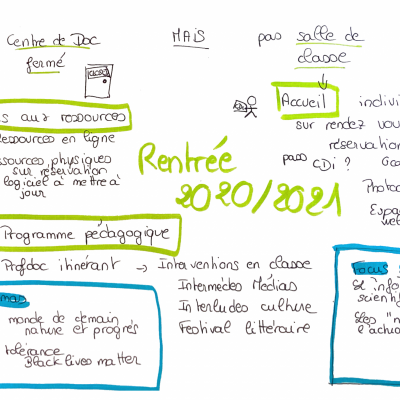 Centre de Doc
fermé
closed
MAIS
pas salle de
classe
s aux ressources
essources en ligne
ssources physiques
sur réservation
logiciel à mettre à
jour
Accueil individ
sur rendez vou
réservation
pass CDI ?
Photoc
Espa
web
Rentrée
2020/2021
Programme pédagogique
Profdoc itinérant → Interventions en classe
Intermèdes Médias
Interludes culture
Festival littéraire
monde de demain
nature et progrès
tolérance
Black lives matter
Focus s
et info
scienti
l'actua